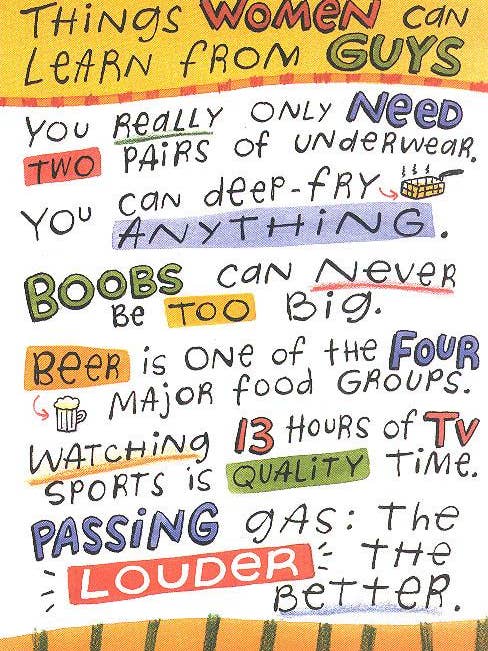 THiNgS WOMEN CAN
LEARN fROM GUYS
YOU REALLY ONLY NEED
TWO PAiRS of UNdERWEAR.
YOU CAN dEEP-fRY
ANYTHiNG.
BOOBS CAN NEVER
BE TOO Big.
BEER iS ONE of THE FOUR
MAjOR food GROUPS.
WATCHiNg 13 HOURS of TV
SPORTS iS QUALiTY TiME.
PASSiNG gAS: The
LOUDER THE
BETTER.